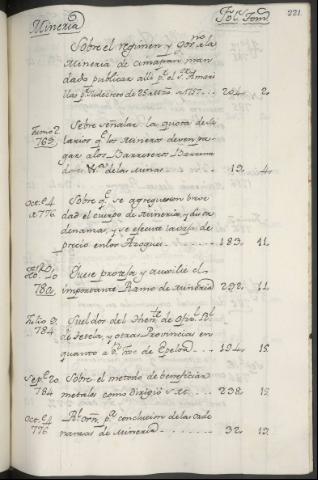 Mineria
Fol.s Tom.s
221.
Sobre el regimen y gov.no de la
Mineria de Cimapan man
dado publicar alli p.r el S.r Amari
llas p.r su decreto de 25 de 1757 . . 204 . . 2.
Junio 2
763
Sobre señalar la quota de sa
larios q.e los Mineros deven pa
gar a los Barreteros Barrena
dores &.a de las Minas . . 19. . . 4.
Oct.e 4
776
Sobre q.e se agreguen en breve
dad el cuerpo de Mineria, y dicta
denamas, y se efectue la vaja de
precio en los Azogues . . . 183. . . 11.
780
Que se proteja y auxilie el
importante Ramo de Mineria 292. . . 11.
Julio 9
784
Sueldos del Then.te de
de y otras Provincias en
quanto a . . . . 194. . . 15.
Sep.e 20
784
Sobre el metodo de beneficiar
metales como dirigió . . . . 238. . . 15
Oct.e 4
776
R.l orn. p.a conclucion de las orde
nanzas de Mineria . . . . . . . 32. . . 19.